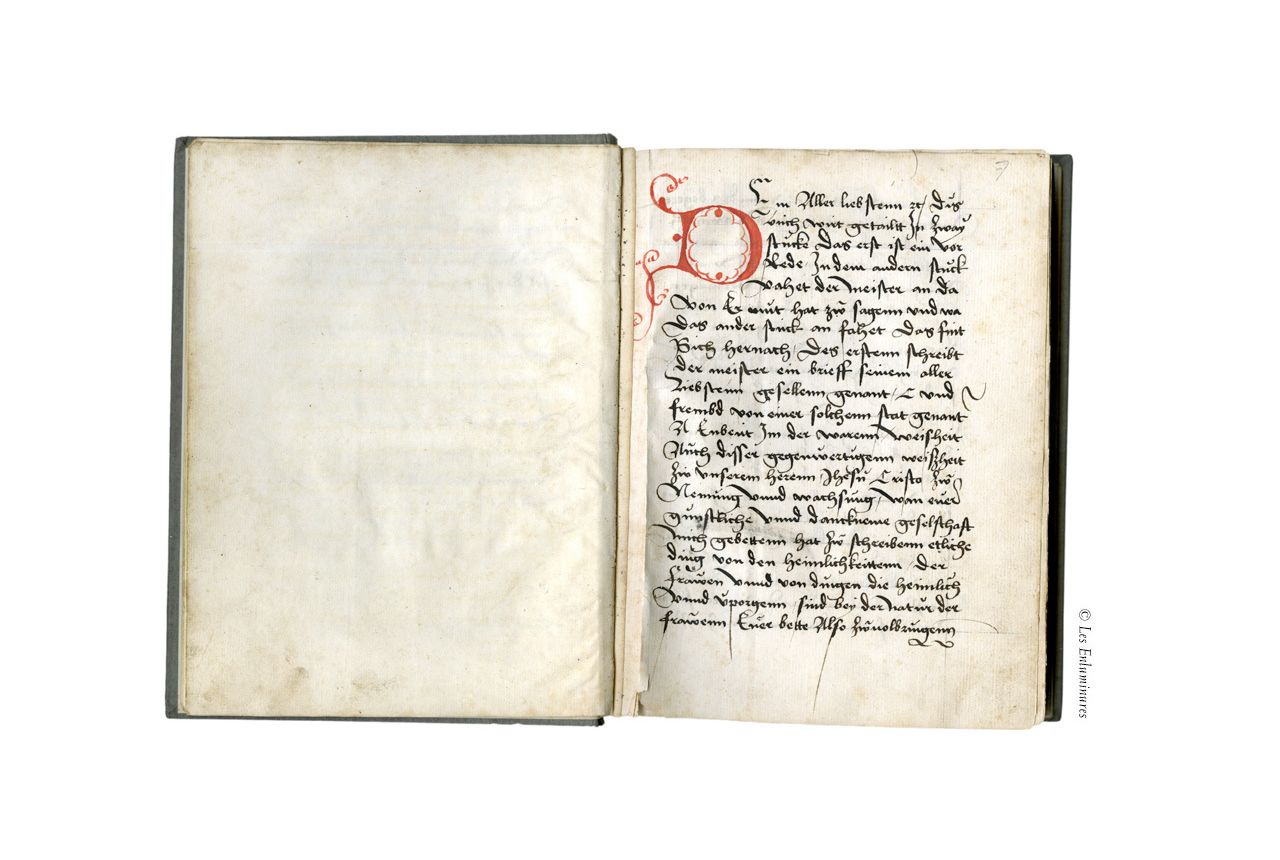 7
DEm Aller liebstenn ꝛc / Dis
buch wirt getailtt In zway
stucke das erst ist ein vor
Rede / In dem andern stuck
vahet der meister an da
von Er mut hat zů sagenn und wa
das ander stuck an fahet das fint
Sich hernach / Des erstenn schreibt
der meister ein brieff seinem aller
Liebstenn gesellenn genant / C und
frembd von einer solchenn stat genant
A Enbeut Im der warenn weisheit
Auch disser gegenwertigenn weißheit
zů unserem herenn Jhesu Cristo zů
Nemung vnnd wachsung / wan euer
gunstliche vnnd danckneme geselschaft
mich gebettenn hat zů schreibenn etliche
ding von den heimlichkeittenn / der
frawen vnnd von dingen die heimlich
vnnd vporgenn / sind bey der natur der
frawenn Euer bette Also zůuolbringenn
© Les Enluminures